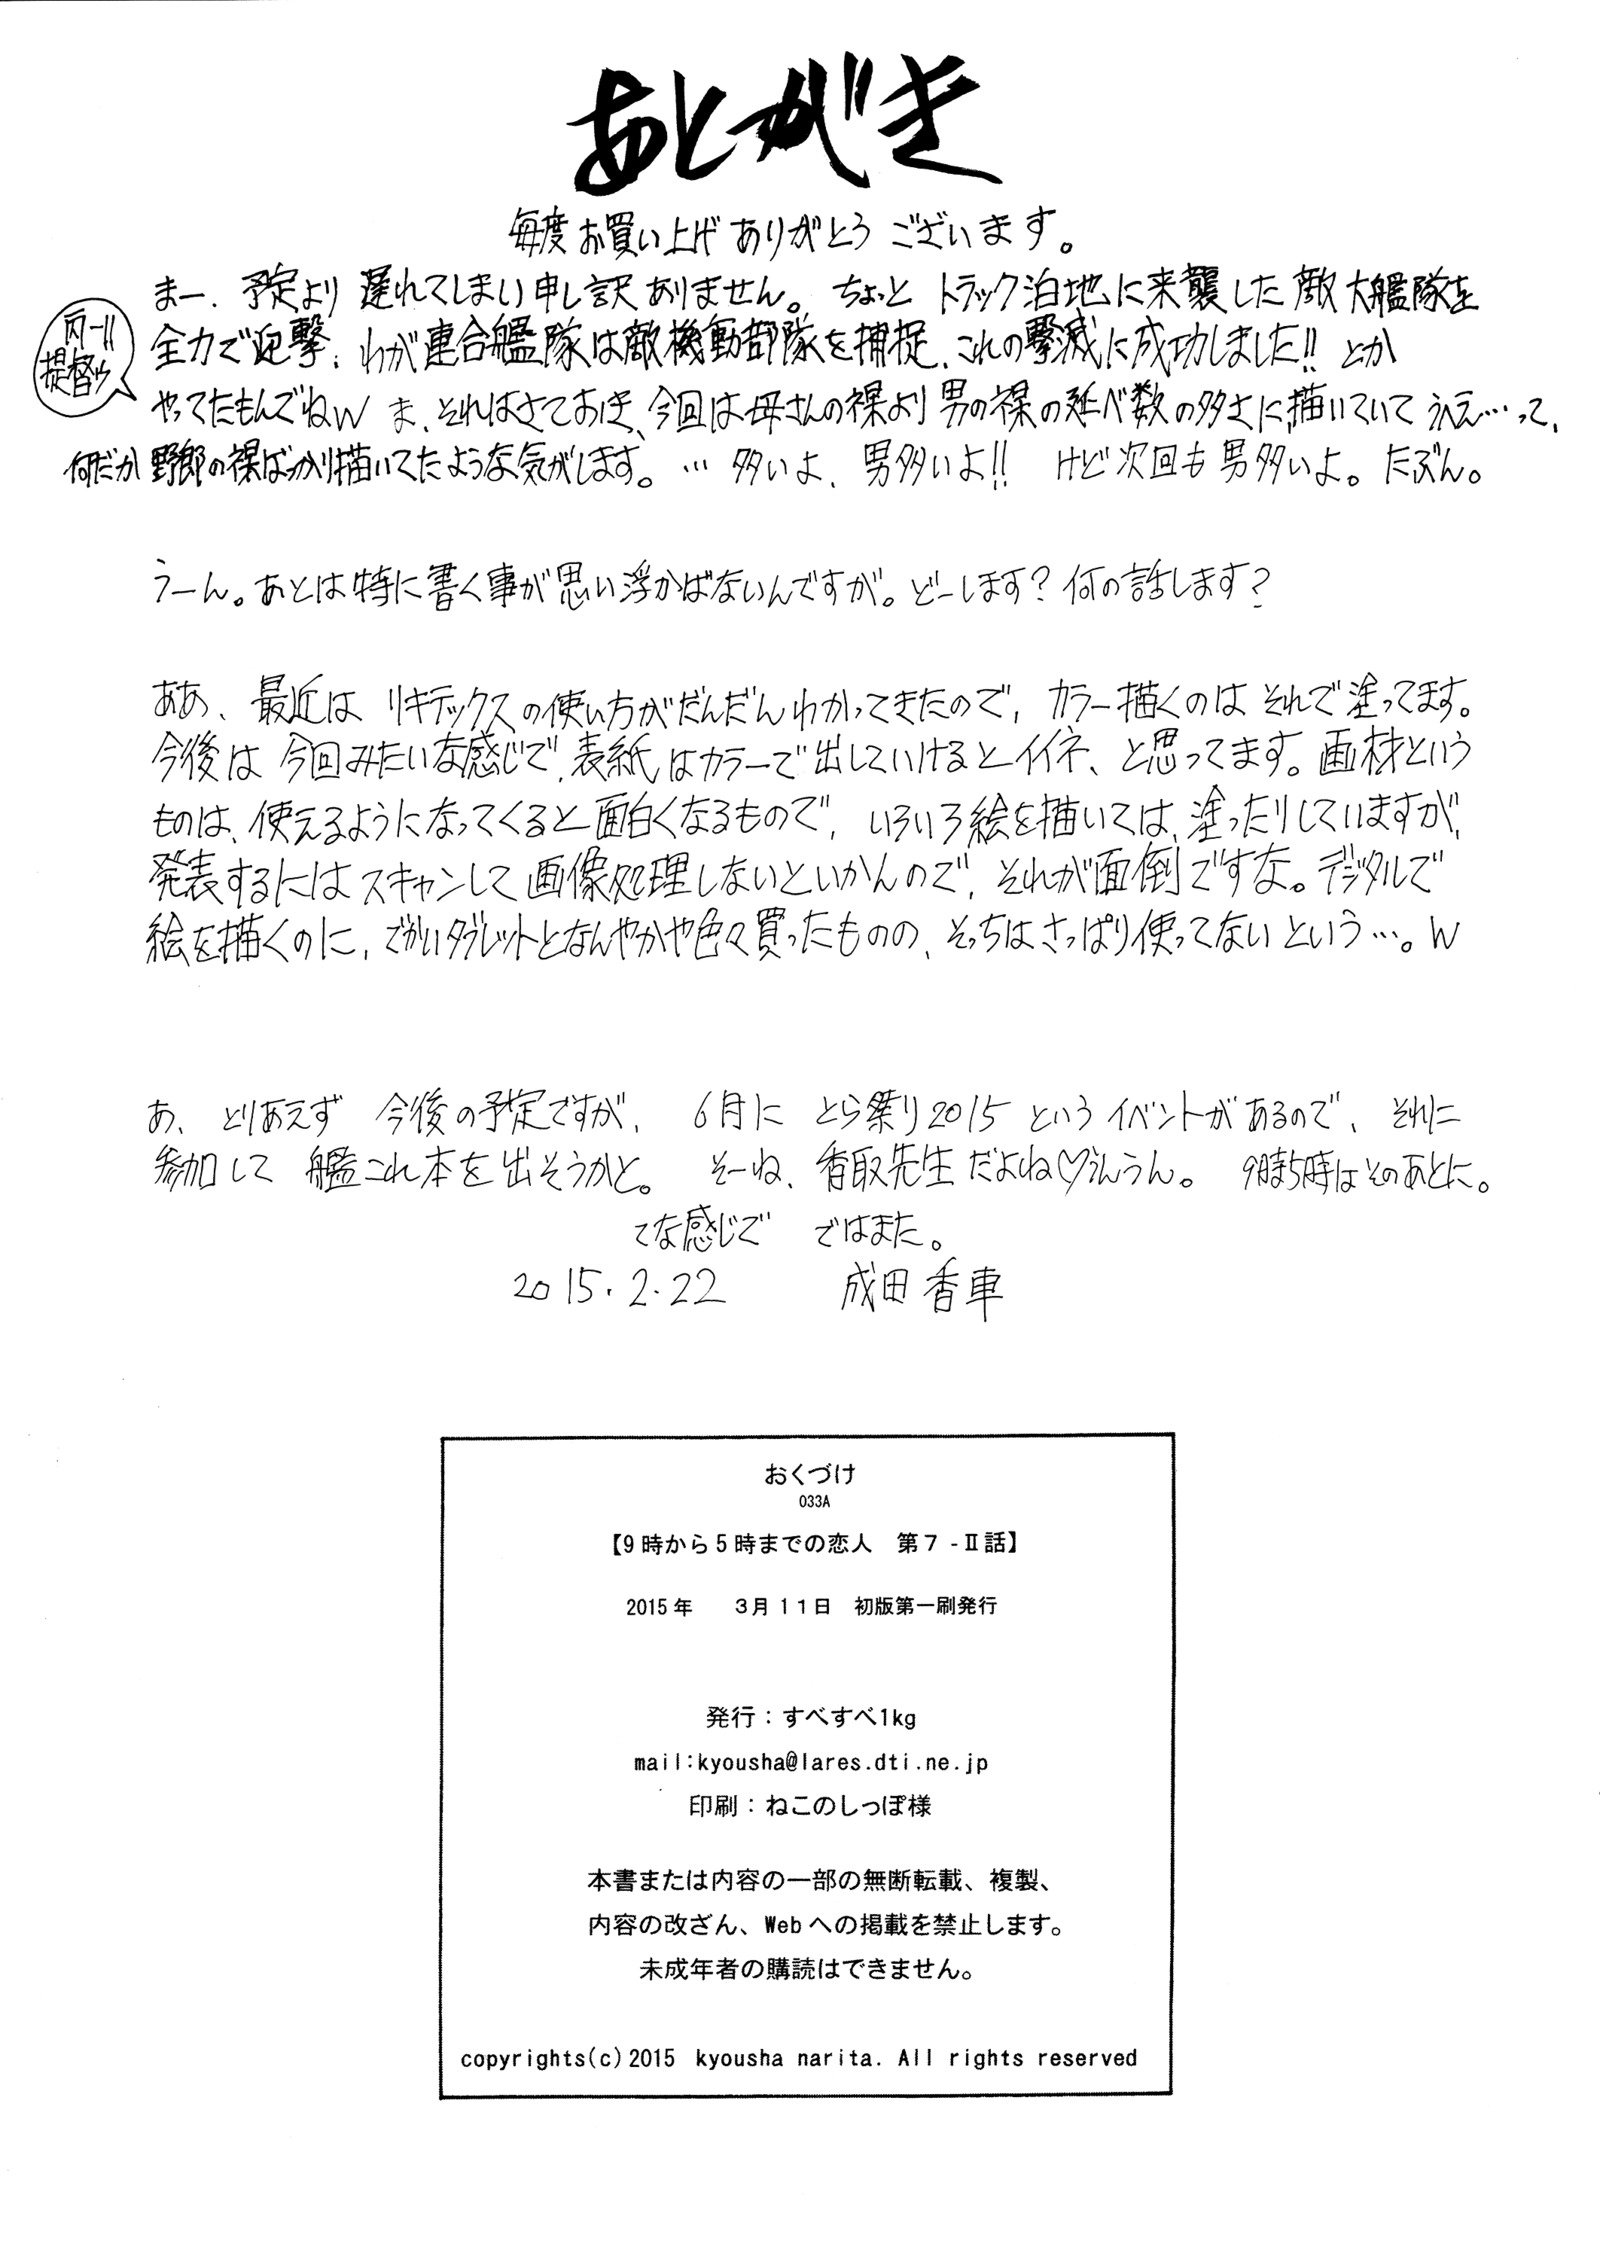 あとがき
毎度お買い上げありがとうございます。
まー、予定より遅れてしまい申し訳ありません。ちょっとトラック泊地に来襲した敵大艦隊を
全力で迎撃、わが連合艦隊は敵機動部隊を捕捉、これの撃滅に成功しました!!とか
丙-11
提督ッ
やってたもんでねw ま、それはさておき、今回は母さんの裸より男の裸の延べ数の多さに、描いていてうええ…って、
何だか野郎の裸ばっかり描いてたような気がします。…多いよ、男多いよ!! けど次回も男多いよ。たぶん。
うーん。あとは特に書く事が思い浮かばないんですが。どーします?何の話します?
ああ、最近はリキテックスの使い方がだんだんわかってきたので、カラー描くのはそれで塗ってます。
今後は今回みたいな感じで、表紙はカラーで出していけるとイイネ、と思ってます。画材という
ものは、使えるようになってくると面白くなるもので、いろいろ絵を描いては、塗ったりしていますが、
発表するにはスキャンして画像処理しないといかんので、それが面倒ですな。デジタルで
絵を描くのに、でかいタブレットとなんやかや色々買ったものの、そっちはさっぱり使ってないという…。w
あ、とりあえず今後の予定ですが、6月にとら祭り2015というイベントがあるので、それに
参加して艦これ本を出そうかと。そーね、香取先生だよね♡うんうん。9時5時はそのあとに。
てな感じで ではまた。
2015.2.22 成田香車
おくづけ
033A
【9時から5時までの恋人 第7-Ⅱ話】
2015年 3月11日 初版第一刷発行
発行：すべすべ1kg
mail:kyousha@lares.dti.ne.jp
印刷：ねこのしっぽ様
本書または内容の一部の無断転載、複製、
内容の改ざん、Webへの掲載を禁止します。
未成年者の購読はできません。
copyrights(c)2015 kyousha narita. All rights reserved